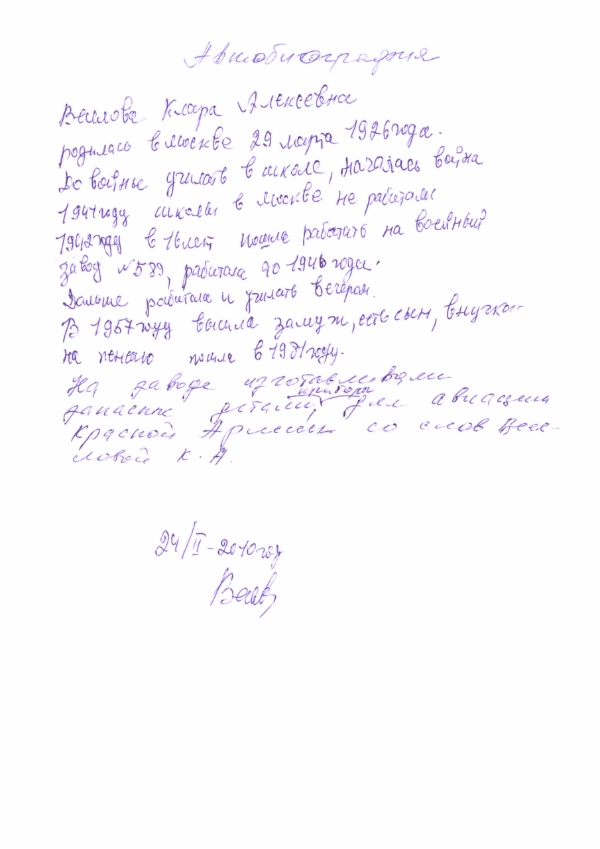 Автобиография
Клара Алексеевна
родилась в Москве 29 марта 1926 года.
До войны училась в школе, началась война
1941 году школы в Москве не работали
1942 году в 16 лет пошла работать на военный
завод №589, работала до 1946 года.
Дальше работала и училась вечером.
В 1957 году вышла замуж, есть сын, внучка
на пенсию пошла в 1981 году.
На заводе изготавливали
приборы
запасные детали, для авиации
Красной Армии со слов
К. А.
24/II-2010 год